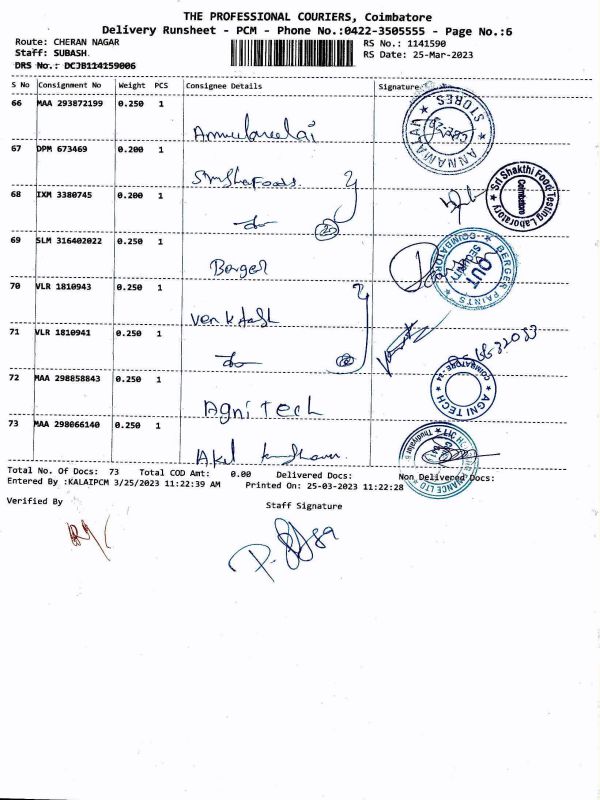 THE PROFESSIONAL COURIERS, Coimbatore
Delivery Runsheet - PCM - Phone No.:0422-3505555 - Page No.:6
Route: CHERAN NAGAR
Staff: SUBASH.
DRS No.: DCJB114159006
RS No.: 1141590
RS Date: 25-Mar-2023
S No Consignment No Weight PCS Consignee Details Signature
66 MAA 293872199 0.250 1
ANNAMALAI STORES
67 DPM 673469 0.200 1
Sri Shakthi Food Testing Laboratory Coimbatore
68 IXM 3380745 0.200 1
69 SLM 316402022 0.250 1 Berger
BERGER PAINTS COIMBATORE SECURITY OUT
70 VLR 1810943 0.250 1 Venktash
71 VLR 1810941 0.250 1
72 MAA 298858843 0.250 1 Agni Tech
AGNI TECH COIMBATORE
73 MAA 298066140 0.250 1 Akel
Total No. Of Docs: 73 Total COD Amt: 0.00 Delivered Docs: Non Delivered Docs:
Entered By :KALAIPCM 3/25/2023 11:22:39 AM Printed On: 25-03-2023 11:22:28
Verified By
Staff Signature